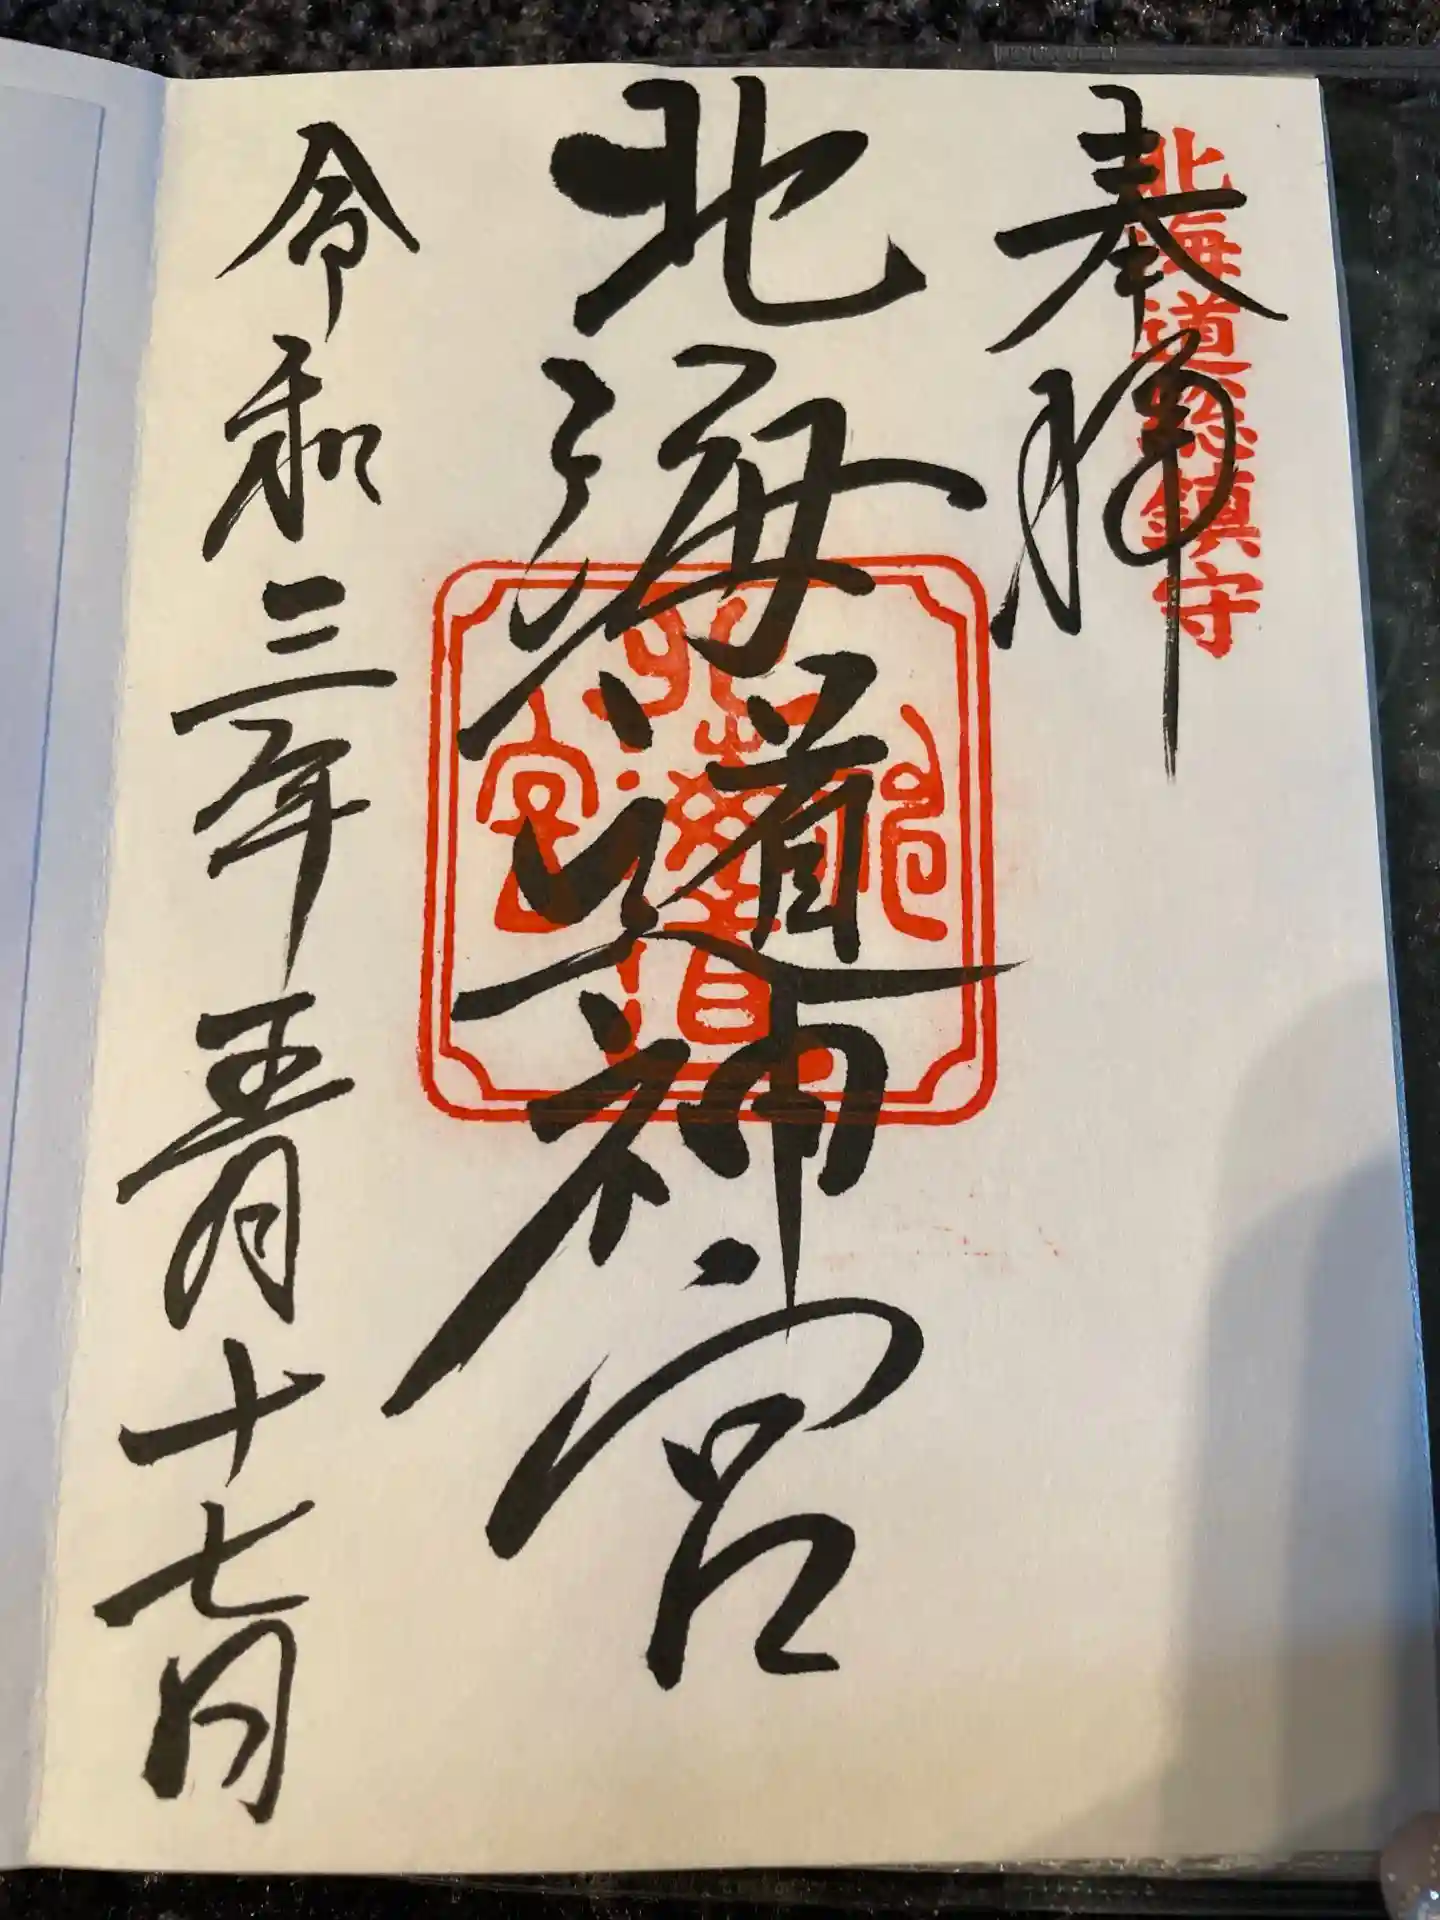 奉拝
北海道総鎮守
北海道神宮
令和三年五月十七日